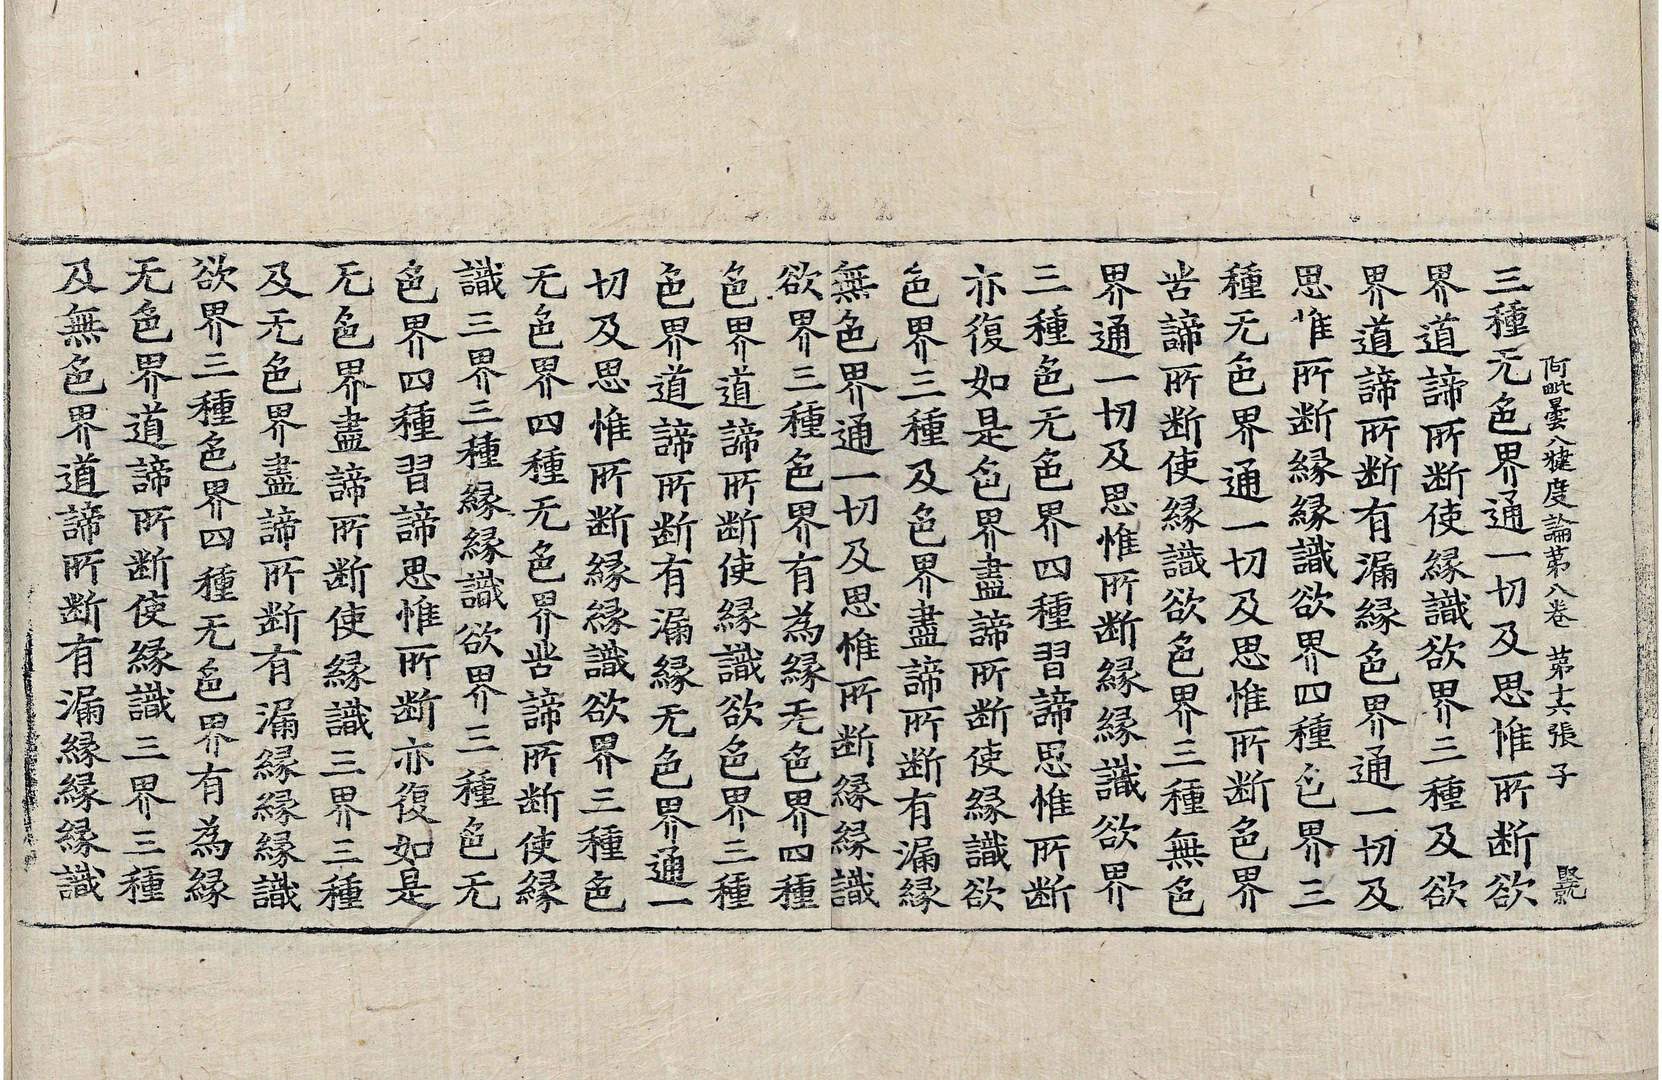 阿毗曇八犍度論苐八卷 苐十六張 子
三種无色界通一切及思惟所断欲
界道諦所断使縁識欲界三種及欲
界道諦所断有漏縁色界通一切及
思惟所断縁縁識欲界四種色界三
種无色界通一切及思惟所断色界
苦諦所断使縁識欲色界三種無色
界通一切及思惟所断縁縁識欲界
三種色无色界四種習諦思惟所断
亦復如是色界盡諦所断使縁識欲
色界三種及色界盡諦所断有漏縁
無色界通一切及思惟所断縁縁識
欲界三種色界有為縁无色界四種
色界道諦所断使縁識欲色界三種
色界道諦所断有漏縁无色界通一
切及思惟所断縁縁識欲界三種色
无色界四種无色界苦諦所断使縁
識三界三種縁縁識欲界三種色无
色界四種習諦思惟所断亦復如是
无色界盡諦所断使縁識三界三種
及无色界盡諦所断有漏縁縁縁識
欲界三種色界四種无色界有為縁
无色界道諦所断使縁識三界三種
及無色界道諦所断有漏縁縁縁識